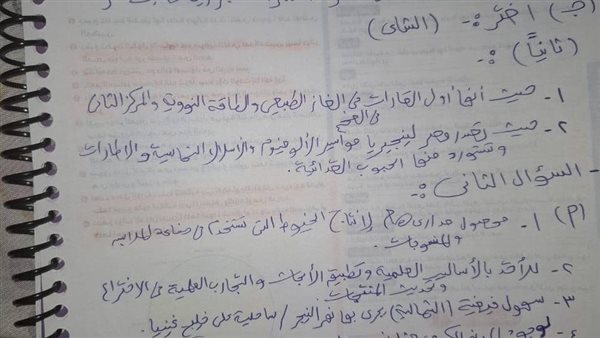 (ج) اختر :- (الثانى)
(ثانياً) :-
١- حيث أنها أول القارات فى الغاز الطبيعى والطاقة النووية والمركز الثانى
فى الفحم
٢- حيث تصدر مصر لنيجيريا مواسير الألومنيوم والأسلاك النحاسية والاطارات
وتستورد منها الحبوب الغذائية.
- السؤال الثانى :-
(م) ١- محصول مدارى هام لإنتاج الخيوط التى تستخدم فى صناعة الملابس
والمنسوجات.
٢- للأخذ بالأساليب العلمية وتطبيق الأبحاث والتجارب العلمية فى الاختراع
وتحديث المنتجات
٣- سهول فيضية (الشمالية) يجرى بها نهر النيجر / ساحلية على خليج غينيا.
٤-